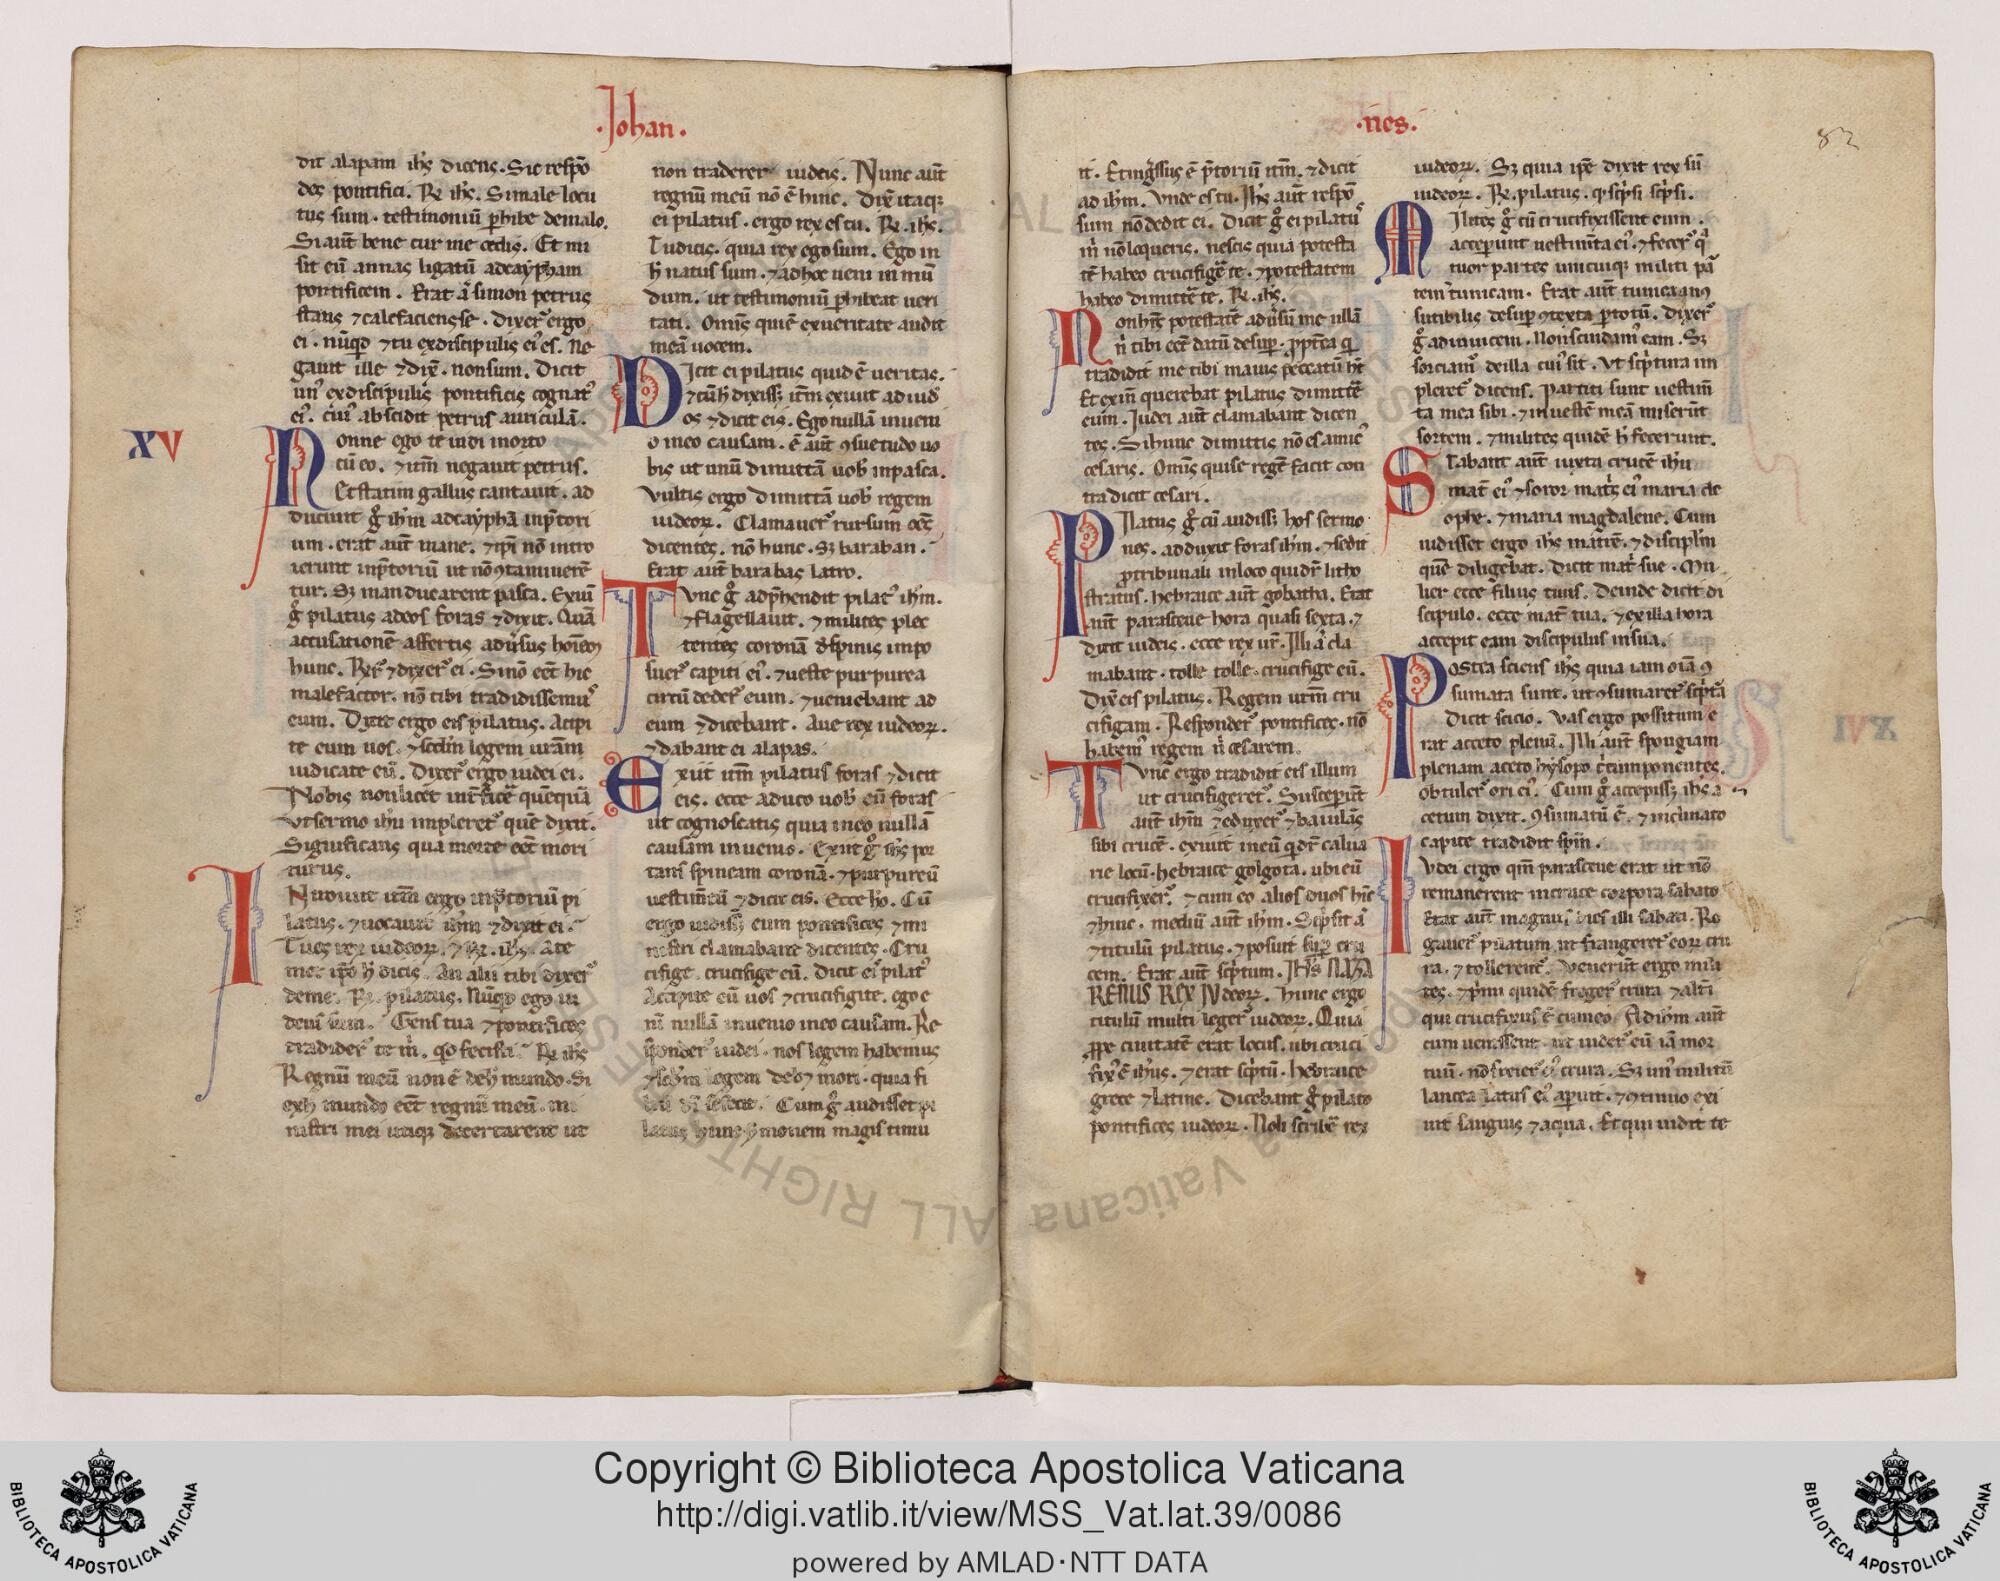 ·Johan·
dit alapam ihs̄ dicens. Sic respō
des pontifici. R̄. ihs̄. Si male locu
tus sum. testimoniū phibe de malo.
Si aut̄ bene cur me cedis. Et mi
sit eū annas ligatū ad caypham
pontificem. Erat ā simon petrus
stans ⁊ calefaciens se. dixer̄ ergo
ei. nūqd ⁊ tu ex discipulis ei' es. Ne
gauit ille ⁊ dix̄. non sum. Dicit
un' ex discipulis pontificis cognat'
ei'. cui' abscidit petrus auriculā.
XV
Nonne ego te uidi in orto
cū eo. ⁊ itm̄ negauit petrus.
Et statim gallus cantauit. ad
ducunt g° ihm̄ ad cayphā in ptori
um. erat aut̄ mane. ⁊ ipi nō intro
ierunt in ptoriū ut nō 9taminarē
tur. Sz manducarent pasca. Exiū
g° pilatus ad eos foras ⁊ dixit. Quā
accusationē affertis aduersus hoīem
hunc. R̄r ⁊ dixer̄ ei. Si nō eēt hic
malefactor. nō tibi tradidissem'
eum. Dixit ergo eis pilatus. Accipi
te eum uos. ⁊ scdm̄ legem urām
iudicate eū. Dixer̄ ergo iudei ei.
Nobis non licet int̄ficē quēquā
ut sermo ihu impleret' quē dixit.
Significans qua morte eēt mori
turus.
Introiuit itm̄ ergo in ptoriū pi
latus. ⁊ uocauit ihm̄ ⁊ dixit ei.
Tu es rex iudeoꝝ. ⁊ R̄. ihs̄. A te
met ipo h̄ dicis. An alii tibi dixer̄
de me. R̄. pilatus. Nūqd ego iu
deus sum. Gens tua ⁊ pontifices
tradider̄ te m̄. qd fecisti. R̄. ihs̄
Regnū meū non ē de h̄ mundo. Si
ex h̄ mundo eēt regnū meū. mi
nistri mei utiqꝫ decertarent ut
non traderer iudeis. Nunc aut̄
regnū meū nō ē hinc. Dix̄ itaqꝫ
ei pilatus. ergo rex es tu. R̄. ihs̄.
Tu dicis. quia rex ego sum. Ego in
h̄ natus sum. ⁊ ad hoc ueni in mū
dum. ut testimoniū phibeat ueri
tati. Omīs qui ē ex ueritate audit
meā uocem.
Dicit ei pilatus quid ē ueritas.
⁊ cū h̄ dixissꝫ itm̄ exiuit ad iude
os ⁊ dicit eis. Ego nullā inueni
o in eo causam. ē aut̄ 9suetudo uo
bis ut unū dimittā uob inpasca.
Vultis ergo dimittā uob regem
iudeoꝝ. Clamauer̄ rursum oēs
dicentes. nō hunc. Sz baraban.
Erat aut̄ barabas latro.
Tunc g° adphendit pilat' ihm̄.
⁊ flagellauit. ⁊ milites plec
tentes coronā de spinis impo
suer̄ capiti ei'. ⁊ ueste purpurea
circūdeder̄ eum. ⁊ ueniebant ad
eum ⁊ dicebant. Aue rex iudeoꝝ.
⁊ dabant ei alapas.
Exiit itm̄ pilatus foras ⁊ dicit
eis. ecce aduco uob eū foras
ut cognoscatis quia in eo nullā
causam inuenio. Exiit g° ihs̄ por
tans spineam coronā. ⁊ purpureū
uestimtū ⁊ dicit eis. Ecce ho. Cū
ergo uidissꝫ eum pontifices ⁊ mi
nistri clamabant dicentes. Cru
cifige. crucifige eū. Dicit ei' pilat'
Accipite eū uos ⁊ crucifigite. ego e
ni nullā inuenio in eo causam. Re
sponder̄ iudei. nos legem habemus
⁊ scdm̄ legem debꝫ mori. quia fi
liū di se fecit. Cum g° audisset pi
latus hunc smonem magis timu
·nes·
82
it. Et ingssus ē ptoriū itm̄. ⁊ dicit
ad ihm̄. Vnde es tu. Ihs̄ aut̄ respō
sum nō dedit ei. Dicit g° ei pilatus
m̄ nō loqueris. nescis quia potesta
tē habeo crucifigē te. ⁊ potestatem
habeo dimittē te. R̄. ihs̄.
Non hrēs potestatē aduersū me ullā
n̄ tibi eēt datū desup. ppterea q
tradidit me tibi maius peccatū ht̄
Et exin querebat pilatus dimittē
eum. Iudei aut̄ clamabant dicen
tes. Si hunc dimittis nō es amic'
cesaris. Omīs qui se regē facit con
tradicit cesari.
Pilatus g° cū audissꝫ hos sermo
nes. adduxit foras ihm̄. ⁊ sedit
pro tribunali in loco qui dr̄ litho
stratus. hebraice aut̄ gobatha. Erat
aut̄ parasceue hora quasi sexta. ⁊
dixit iudeis. ecce rex ur̄. Illi ā cla
mabant. tolle tolle. crucifige eū.
Dix̄ eis pilatus. Regem urm̄ cru
cifigam. Responder̄ pontifices. nō
habem' regem n̄ cesarem.
Tunc ergo tradidit eis illum
ut crucifigeret'. Susceperūt
aut̄ ihm̄ ⁊ eduxer̄ ⁊ baiulās
sibi crucē. exiuit in eū qi dr̄ calua
rie locū. hebraice golgota. ubi eū
crucifixer̄. ⁊ cum eo alios duos hinc
⁊ hinc. mediū aut̄ ihm̄. Scpsit ā
⁊ titulū pilatus. ⁊ posuit sup cru
cem. Erat aut̄ scptum. IHS NAZA
RENUS REX IVdeoꝝ. hunc ergo
titulū multi leger̄ iudeoꝝ. Quia
ppe ciuitatē erat locus. ubi cruci
fix' ē ihs̄. ⁊ erat scptū. hebraice
grece ⁊ latine. Dicebant g° pilato
pontifices iudeoꝝ. Noli scribē rex
iudeoꝝ. Sz quia ipe dixit rex sū
iudeoꝝ. R̄. pilatus. q scpsi scpsi.
Milites g° cū crucifixissent eum.
acceperunt uestimta ei'. ⁊ fecer̄ q
tuor partes unicuiqꝫ militi pa
tem ⁊ tunicam. Erat aut̄ tunica in9
sutibilis desup 9texta p totū. dixer̄
g° ad inuicem. Non scindam' eam. Sz
sorciam' de illa cui' sit. Vt scptura im
pleret' dicens. Partiti sunt uestim
ta mea sibi. ⁊ in uestē meā miserūt
sortem. ⁊ milites quidē h̄ fecerunt.
Stabant aut̄ iuxta crucē ihu
mat̄ ei' ⁊ soror mat̄s ei' maria cle
ophe. ⁊ maria magdalene. Cum
uidisset ergo ihs̄ matrē. ⁊ discipulm
quē diligebat. dicit mat̄ sue. Mu
lier ecce filius tuus. Deinde dicit di
scipulo. ecce mat̄ tua. ⁊ ex illa hora
accepit eam discipulus in sua.
Postea sciens ihs̄ quia iam oīa 9
sumata sunt. ut 9sumaret' scptā
dicit scicio. Vas ergo possitum e
rat aceto plenū. Illi aut̄ spongiam
plenam aceto hysopo c̄cumponentes.
obtuler̄ ori ei'. Cum g° accepissꝫ ihs̄ a
cetum dixit. 9sumatū ē. ⁊ inclinato
capite tradidit spm̄.
XVI
Iudei ergo qm̄ parasceue erat ut nō
remanerent in cruce corpora sabato
Erat aut̄ magnus dies illi sabati. Ro
gauer̄ pilatum ut frangeret' eoꝝ cru
ra. ⁊ tollerent'. Venerūt ergo mili
tes. ⁊ pimi quidē freger̄ crura ⁊ alti
qui crucifixus ē cum eo. Ad ihm̄ aut̄
cum uenissent. ut uider̄ eū iā mor
tuū. nō freger̄ ei' crura. Sz un' militū
lancea latus ei' aperuit. ⁊ 9tinuo exi
uit sanguis ⁊ aqua. Et qui uidit te
Copyright © Biblioteca Apostolica Vaticana
http://digi.vatlib.it/view/MSS_Vat.lat.39/0086
powered by AMLAD·NTT DATA
BIBLIOTECA APOSTOLICA VATICANA
BIBLIOTECA APOSTOLICA VATICANA